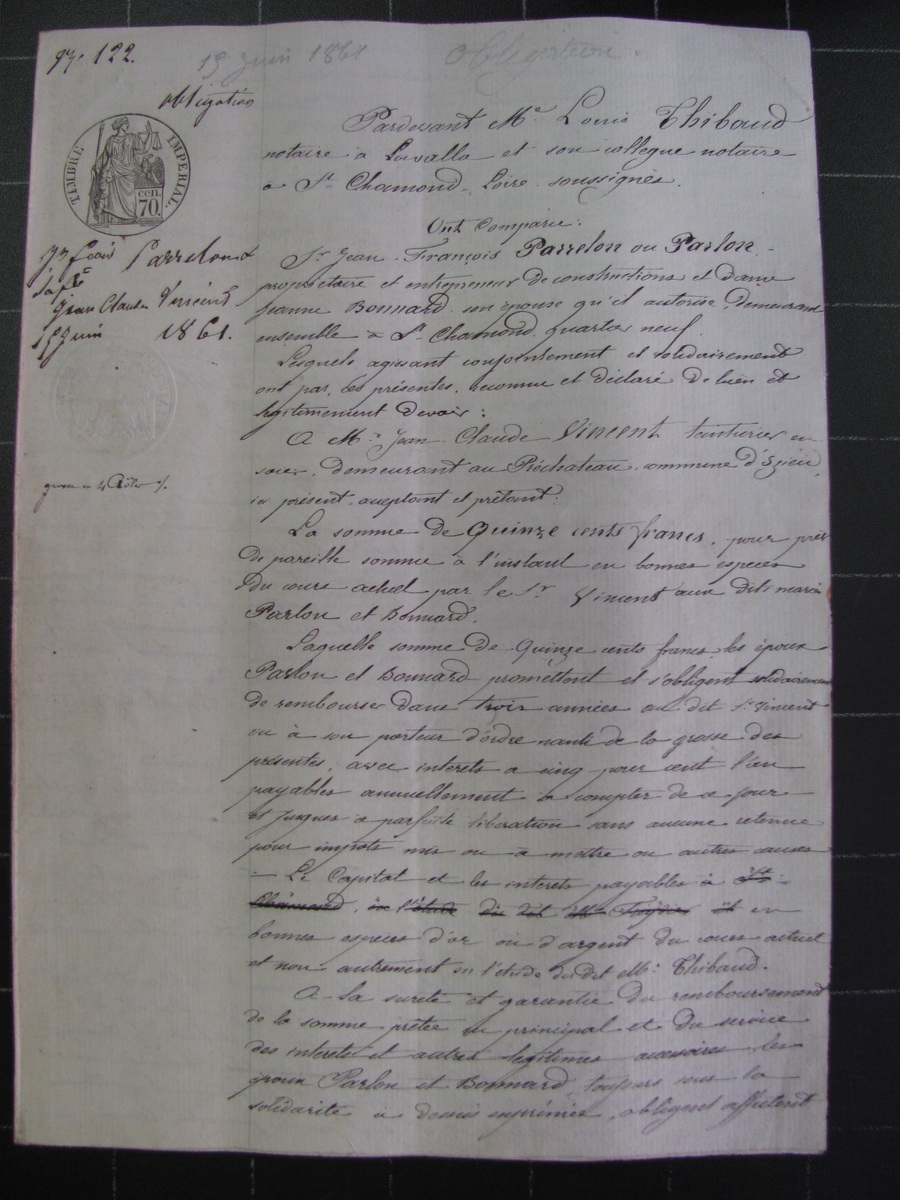 N° 122.
15 juin 1861
Obligation.
Obligation
TIMBRE IMPERIAL.
cen.
70.
Jn Fçois Parrelon
à
Jean Claude Vincent
15 Juin 1861.
Pardevant Me Louis Thibaud
notaire à Lavalla et son collegue notaire
à St Chamond, Loire soussignés.
Ont Comparu:
Sr Jean-François Parrelon ou Parlon
propriétaire et entrepreneur de constructions et dame
Jeanne Bonnard son épouse qu'il autorise, demeurant
ensemble à St Chamond, quartier neuf.
Lesquels agissant conjointement et solidairement
ont par ces présentes, reconnu et déclaré de bien et
légitimement devoir:
A Mr Jean-Claude Vincent teinturier en
soies, demeurant au Piéchateau commune d'Izieu,
ici présent acceptant et prêtant:
La somme de Quinze cents francs, pour prêt
de pareille somme à l'instant en bonnes espèces
du cours actuel par le Sr Vincent aux dits mariés
Parlon et Bonnard.
Laquelle somme de Quinze cents francs, les époux
Parlon et Bonnard promettent et s'obligent solidairement
de rembourser dans trois années au dit Sr Vincent
ou à son porteur d'ordre nanti de la grosse des
présentes, avec interets a cinq pour cent l'an
payables annuellement à compter de ce jour
et jusques à parfaite libération sans aucune retenue
pour impots mis ou à mettre ou autres causes
= Le Capital et les interets payables à St
Chamond, en l'étude du dit Me et en
bonnes espèces d'or ou d'argent du cours actuel
et non autrement en l'etude du dit Me Thibaud.
A la sureté et garantie du remboursement
de la somme prêtée en principal et du service
des interets et autres légitimes accessoires, les
époux Parlon et Bonnard toujours sous la
solidarité ci dessus exprimée, obligent affectent